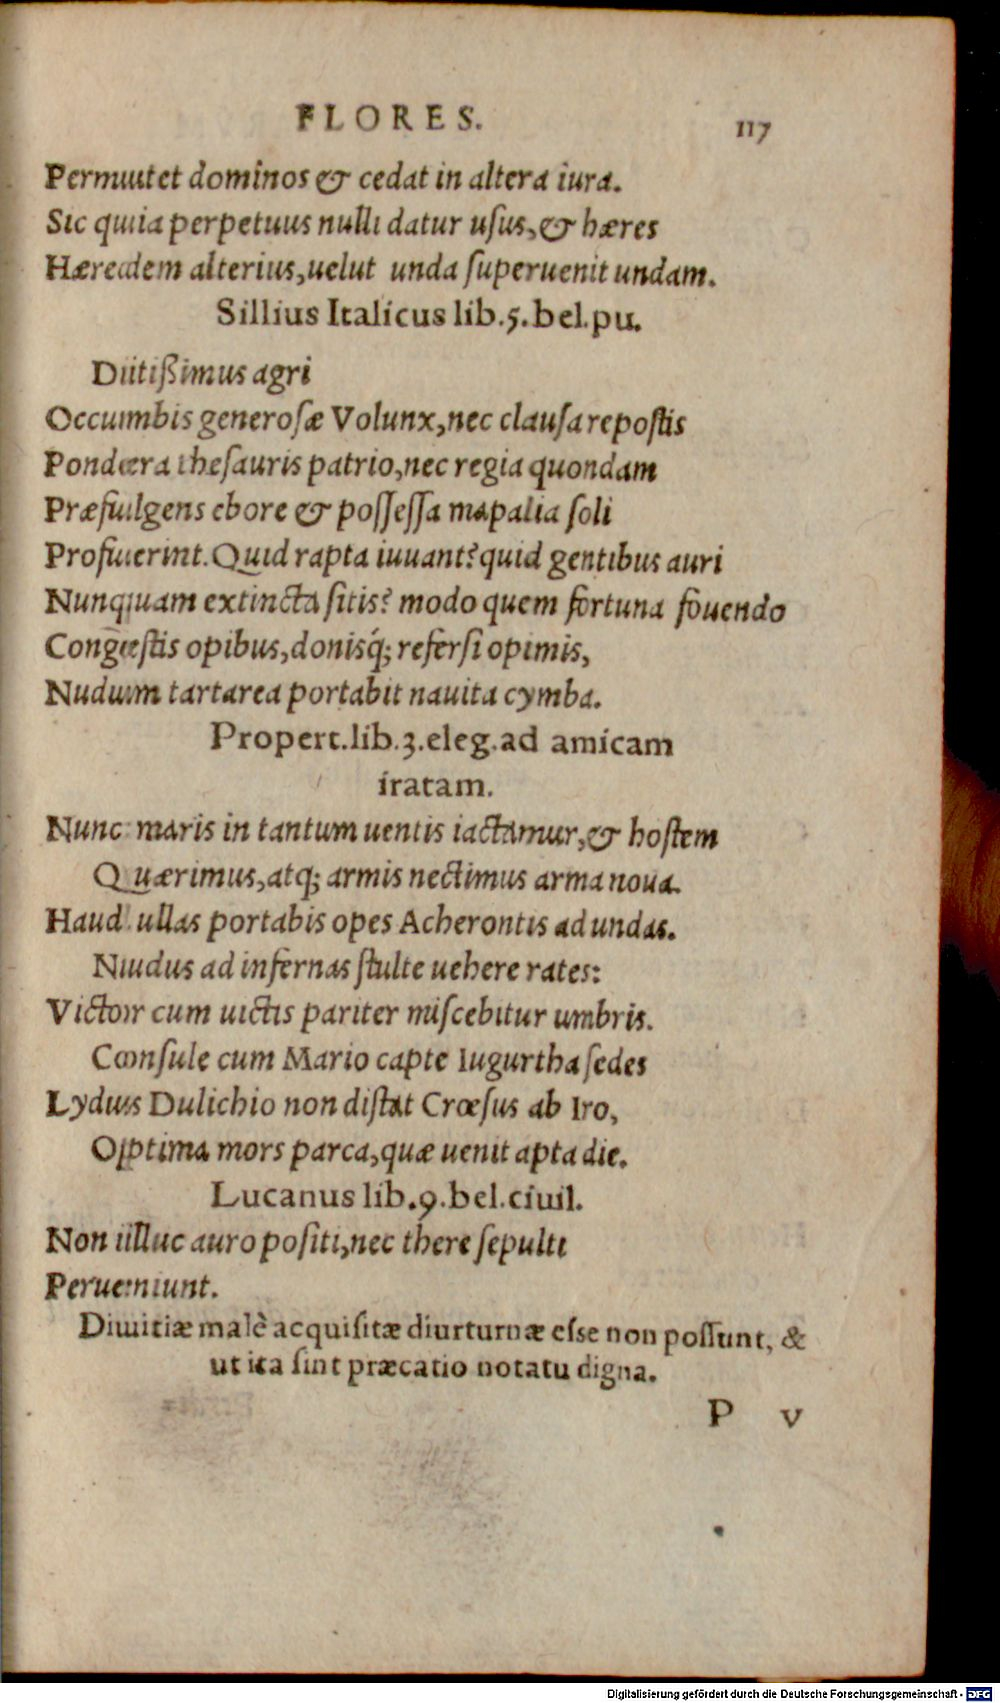 FLORES. 117
Permutet dominos & cedat in altera iura.
Sic quia perpetuus nulli datur usus, & hæres
Hæredem alterius, uelut unda superuenit undam.
Sillius Italicus lib.5.bel.pu.
Ditißimus agri
Occumbis generosæ Volunx, nec clausa repostis
Pondera thesauris patrio, nec regia quondam
Præfulgens ebore & possessa mapalia soli
Profuerint. Quid rapta iuuant? quid gentibus auri
Nunquam extincta sitis? modo quem fortuna fouendo
Congestis opibus, donisq́; refersi opimis,
Nudum tartarea portabit nauita cymba.
Propert.lib.3.eleg.ad amicam
iratam.
Nunc maris in tantum uentis iactamur, & hostem
Quærimus, atq; armis nectimus arma noua.
Haud ullas portabis opes Acherontis ad undas.
Nudus ad infernas stulte uehere rates:
Victor cum uictis pariter miscebitur umbris.
Consule cum Mario capte Iugurtha sedes
Lydus Dulichio non distat Crœsus ab Iro,
Optima mors parca, quæ uenit apta die.
Lucanus lib.9.bel.ciuil.
Non illuc auro positi, nec there sepulti
Perueniunt.
Diuitiæ malè acquisitæ diurturnæ esse non possunt, &
ut ita sint præcatio notatu digna.
P v
Digitalisierung gefördert durch die Deutsche Forschungsgemeinschaft - DFG